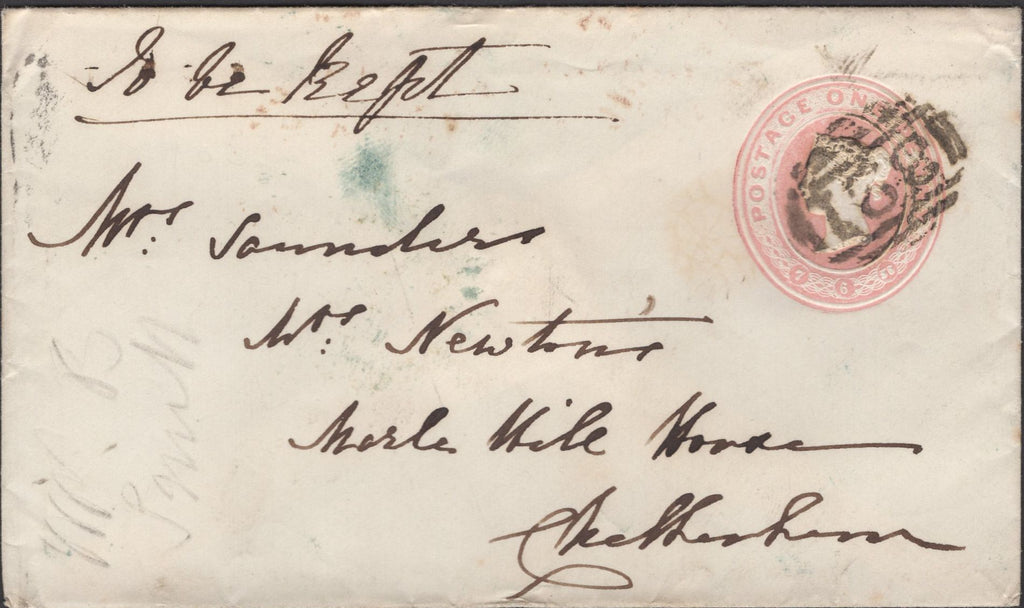 To be kept
POSTAGE ONE
7 6 56
Mrs. Saunders
Mrs. Newtons
Marle Hill House
Cheltenham